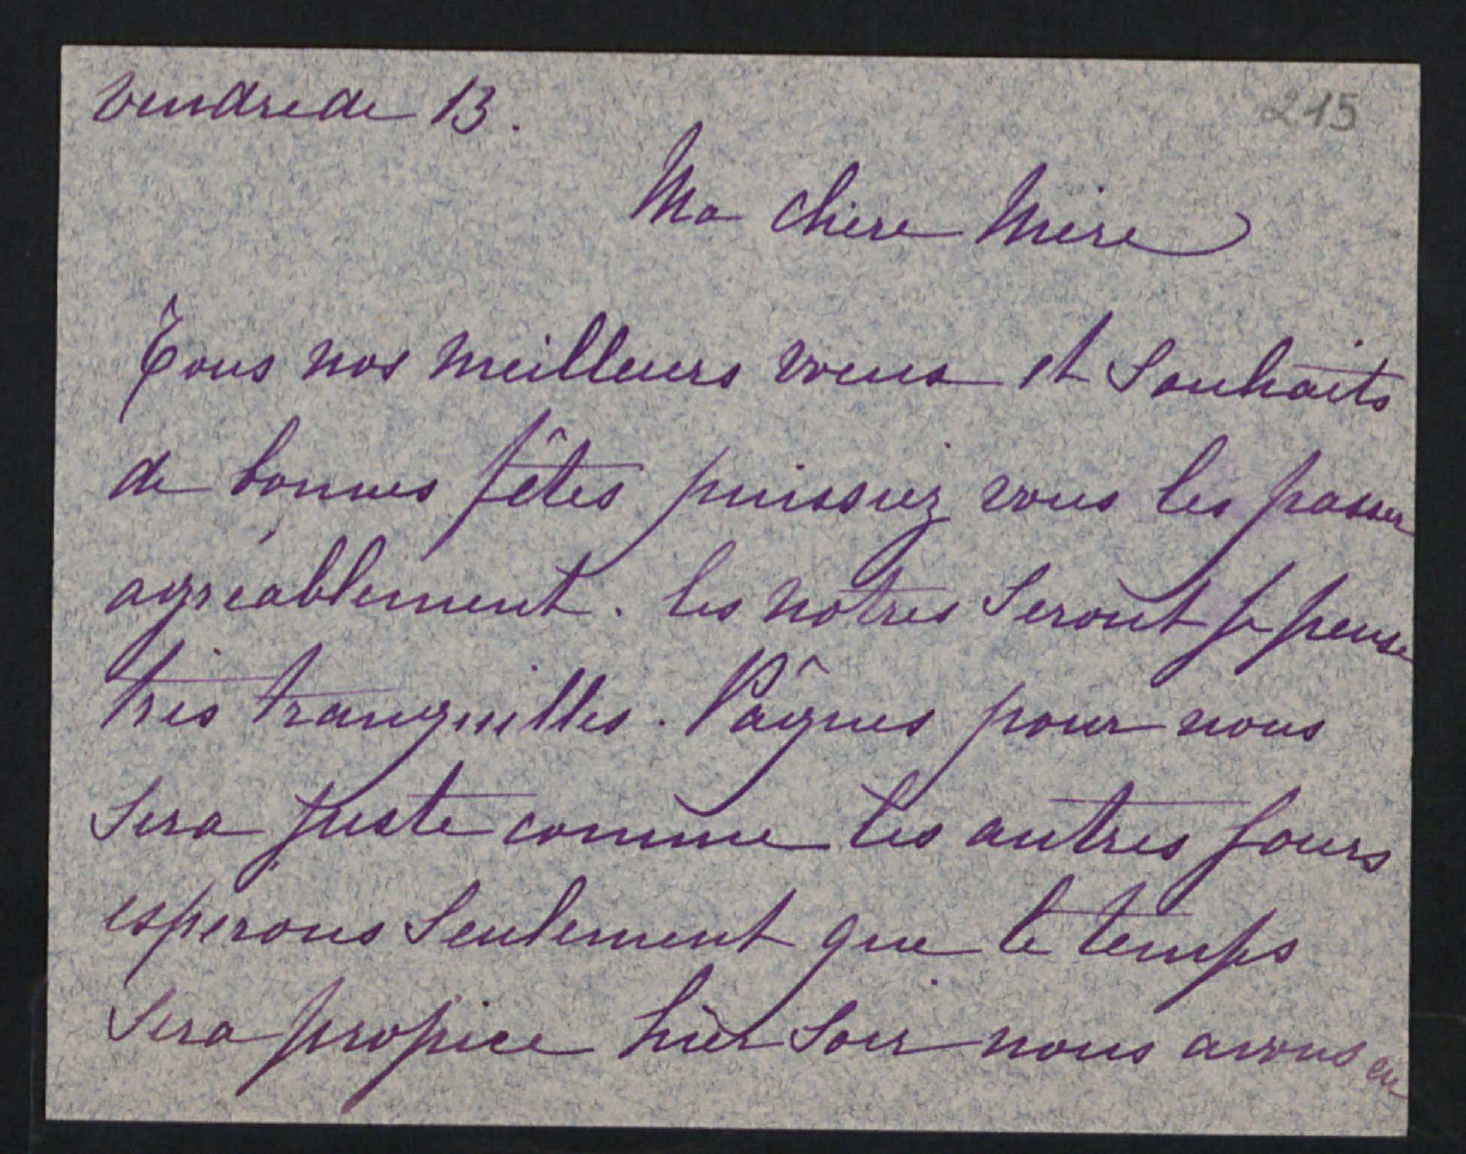 Vendredi 13.
215
Ma chère Mère
Tous nos meilleurs vœux et Souhaits
de bonnes fêtes puissiez vous les passer
agréablement. les notres Seront je pense
très tranquilles. Pâques pour nous
Sera juste comme les autres jours
esperons Seulement que le temps
Sera propice hier Soir nous avons eu